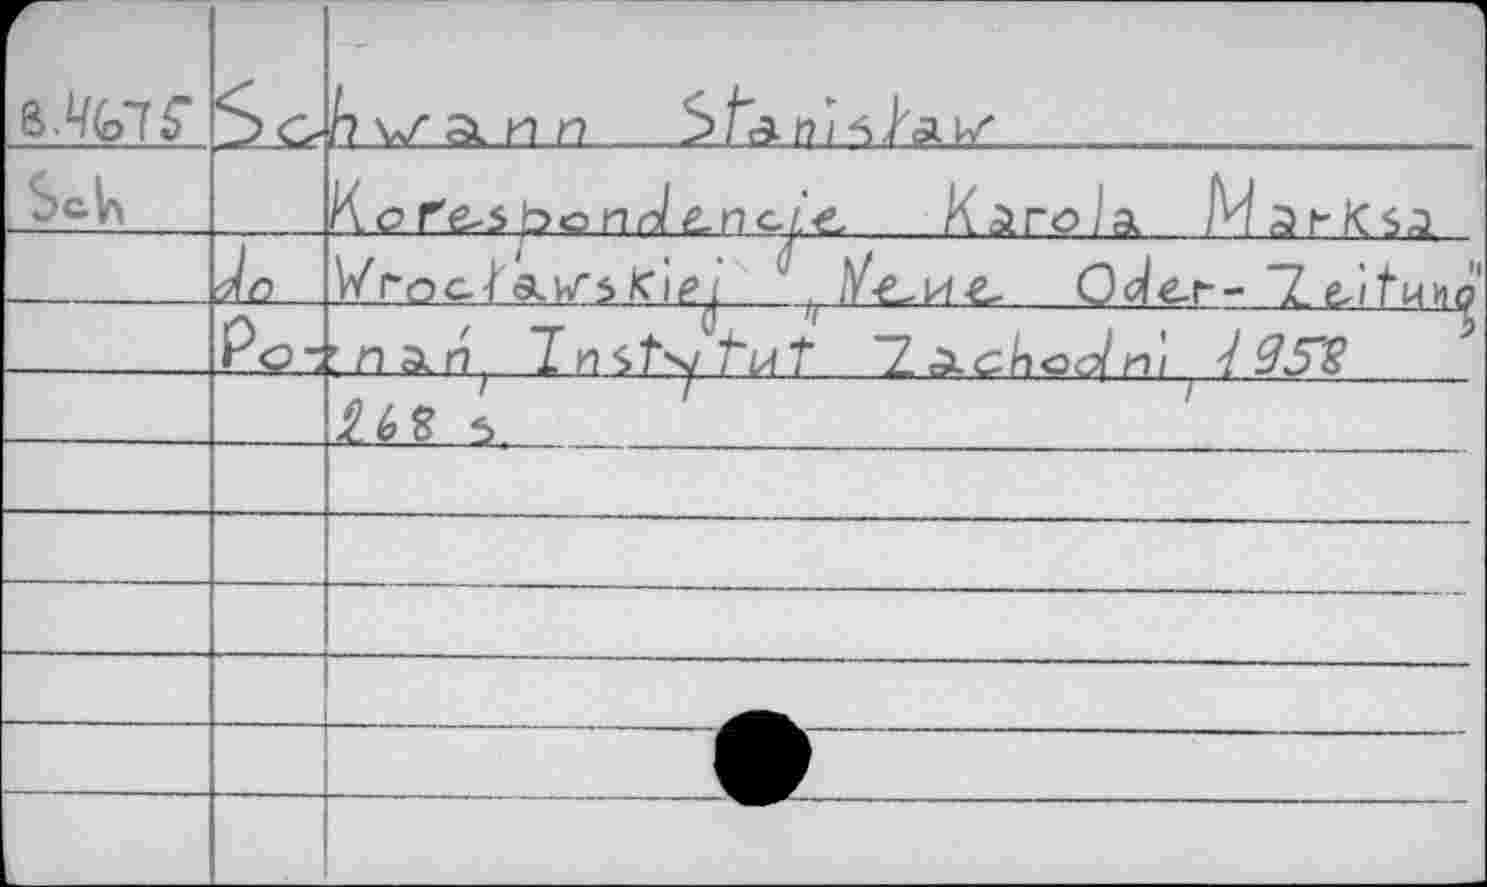 B.4675 Schwann Stanisław
Sch Korespondencje Karola Marksa
do Wrocławskiej „Neue Oder-Zeitung"
Poznań, Instytut Zachodni, 1958
268 s.